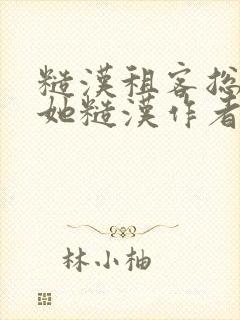 糙漢租客總
她糙漢作者
林小柚